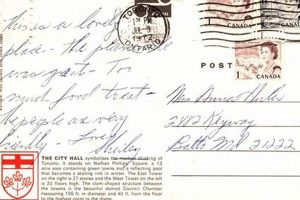 This is a lovely
place - The plane
was great - Too
much food treat -
people are very
friendly Fred
Shirley
TORONTO
PM
JUL 9
1972
ONTARIO
1 CANADA
POST
Miss Anna
2182 Ridgeway
Balto Md 21222
THE CITY HALL symbolizes the modern thinking of
Toronto. It stands on Nathan Phillips Square, a 12
acre area containing green lawns and a reflecting pool
that becomes a skating rink in winter. The East Tower
on the right is 27 stories and the West Tower on the left
is 20 floors high. The clam-shaped structure between
the towers is the beautiful domed Council Chamber
measuring 155 ft. in diameter and 40 ft. from the floor
to the highest point in the dome.